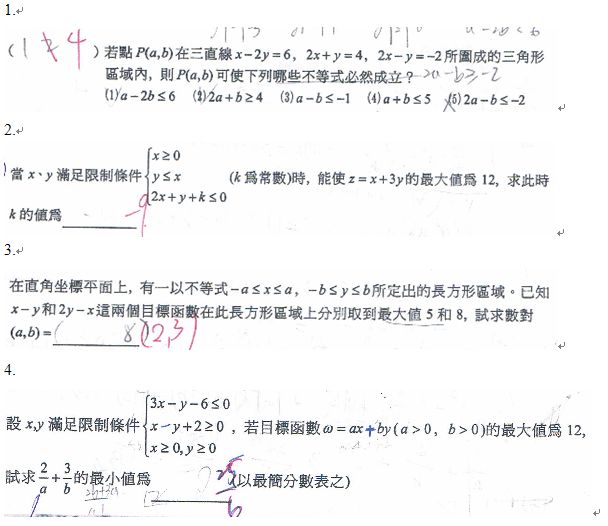 1.
(1 4)若點P(a,b)在三直線x-2y=6，2x+y=4，2x-y=-2所圍成的三角形
區域內，則P(a,b)可使下列哪些不等式必然成立？ 2a-b≥-2
(1)a-2b≤6 (2)2a+b≥4 (3)a-b≤-1 (4)a+b≤5 (5)2a-b≤-2
2.
當x、y滿足限制條件{x≥0
y≤x (k爲常數)時，能使z=x+3y的最大值爲12，求此時
2x+y+k≤0
k的值爲 -9
3.
在直角坐標平面上，有一以不等式-a≤x≤a，-b≤y≤b所定出的長方形區域。已知
x-y和2y-x這兩個目標函數在此長方形區域上分別取到最大值5和8，試求數對
(a,b)= ( 8 (2,3)
4.
設x,y滿足限制條件{3x-y-6≤0
x-y+2≥0，若目標函數ω=ax+by(a>0，b>0)的最大值爲12，
x≥0,y≥0
試求2/a+3/b的最小值爲 25/6 (以最簡分數表之)